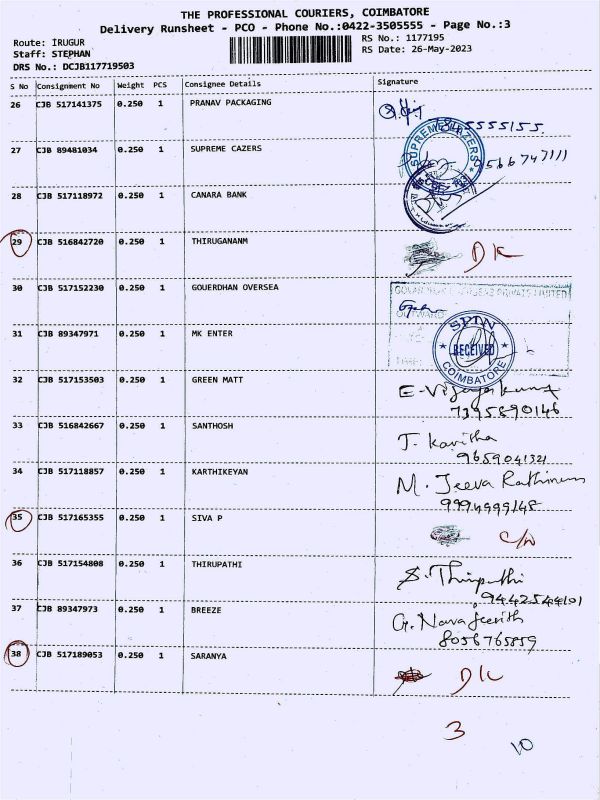 THE PROFESSIONAL COURIERS, COIMBATORE
Delivery Runsheet - PCO - Phone No.:0422-3505555 - Page No.:3
Route: IRUGUR
Staff: STEPHAN
DRS No.: DCJB117719503
RS No.: 1177195
RS Date: 26-May-2023
S No Consignment No Weight PCS Consignee Details Signature
26 CJB 517141375 0.250 1 PRANAV PACKAGING
27 CJB 89481034 0.250 1 SUPREME CAZERS
SUPREME CAZERS
9566747111
28 CJB 517118972 0.250 1 CANARA BANK
29 CJB 516842720 0.250 1 THIRUGANANM
DK
30 CJB 517152230 0.250 1 GOUERDHAN OVERSEA
PRIVATE LIMITED
31 CJB 89347971 0.250 1 MK ENTER
SPTW
RECEIVED
COIMBATORE
32 CJB 517153503 0.250 1 GREEN MATT
7395890146
33 CJB 516842667 0.250 1 SANTHOSH
T. Kavitha
9659041321
34 CJB 517118857 0.250 1 KARTHIKEYAN
M. Jeeva Rathinam
9994999148
35 CJB 517165355 0.250 1 SIVA P
36 CJB 517154808 0.250 1 THIRUPATHI
S. Thirupathi
9442544101
37 CJB 89347973 0.250 1 BREEZE
G. Navajeevith
8056765859
38 CJB 517189053 0.250 1 SARANYA
3
10